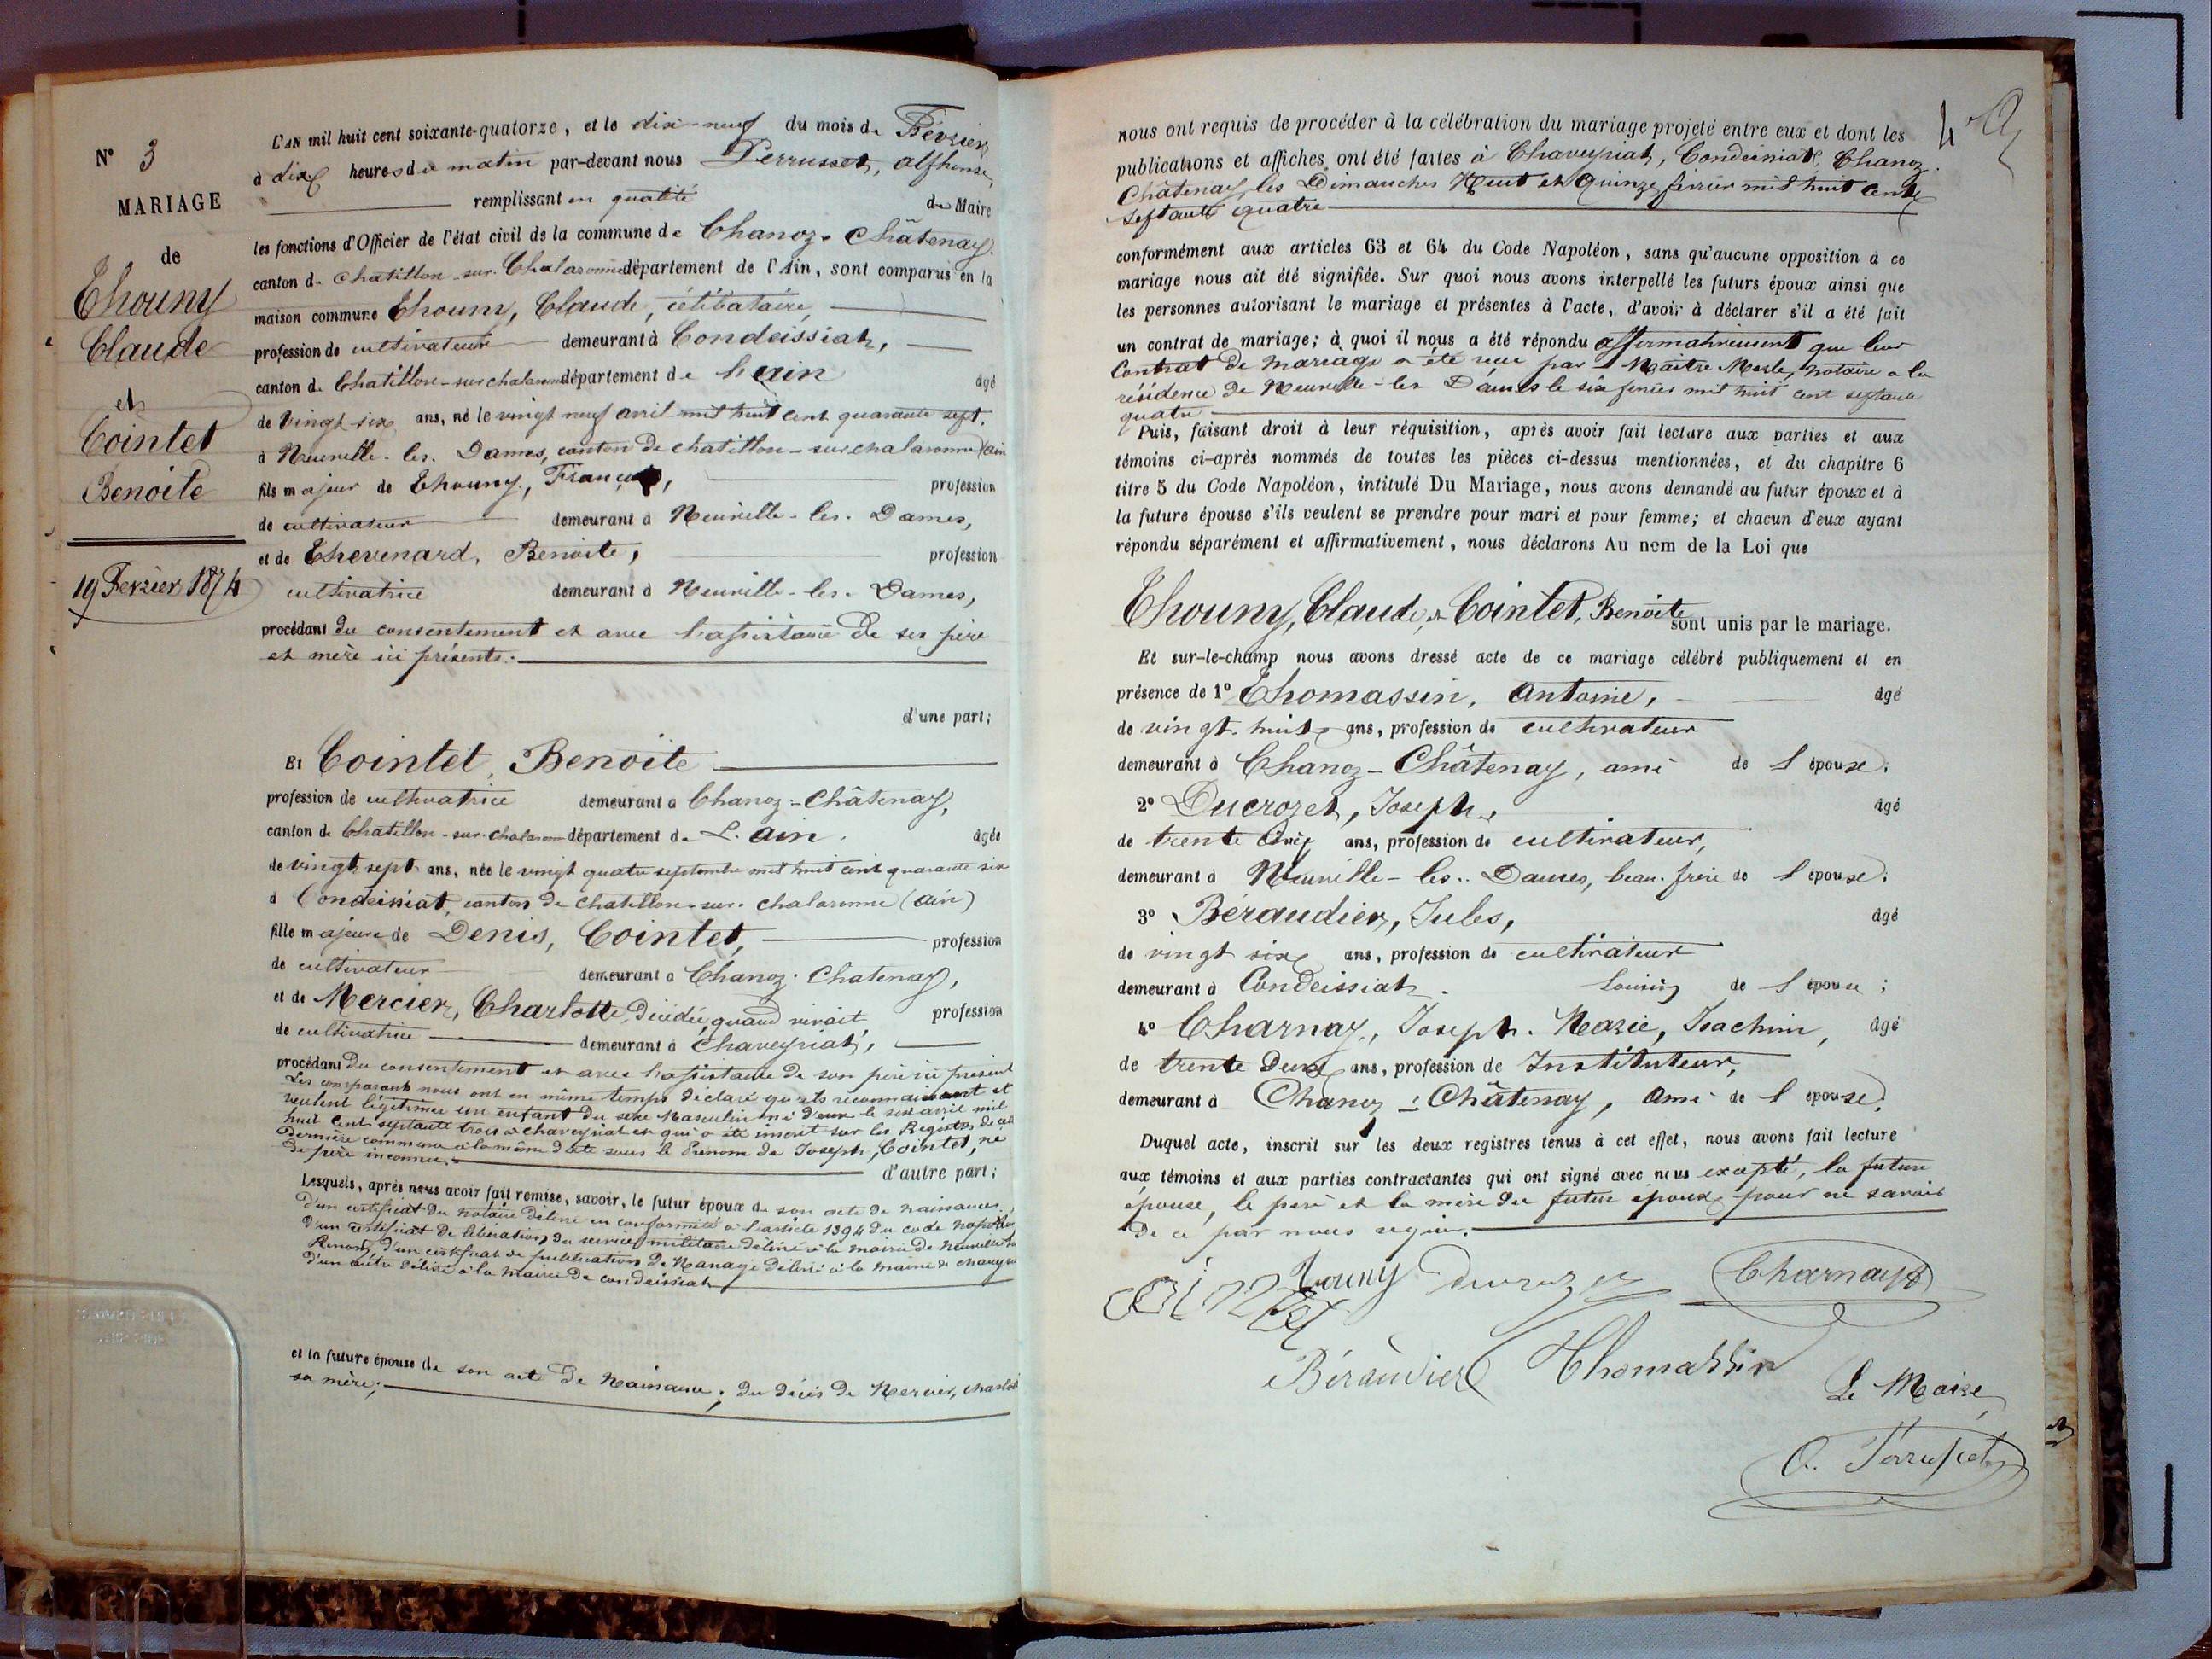 N° 3
MARIAGE
de
Thouny
Claude
et
Cointet
Benoite
19 Fevrier 1874
L'AN mil huit cent soixante-quatorze, et le dix-neuf du mois de Février
à dix heures du matin par-devant nous Perrusset, Alphonse,
remplissant en qualité de Maire
les fonctions d'Officier de l'état civil de la commune de Chanoz-Châtenay
canton de Chatillon-sur-Chalaronne département de l'Ain, sont comparus en la
maison commune Thouny, Claude, célibataire,
profession de cultivateur demeurant à Condeissiat,
canton de Chatillon-sur chalaronne département de l'ain âgé
de vingt six ans, né le vingt neuf avril mil huit cent quarante sept,
à Neuville-les-Dames, canton de chatillon-sur chalaronne (ain
fils majeur de Thouny, François, profession
de cultivateur demeurant à Neuville-les-Dames,
et de Thevenard, Benoite, profession
cultivatrice demeurant à Neuville-les-Dames,
procédant du consentement et avec l'assistance de ses père
et mère ici présents.
d'une part;
Et Cointet, Benoite
profession de cultivatrice demeurant à Chanoz-Châtenay,
canton de Chatillon-sur-chalaronne département de L'ain. âgée
de vingt sept ans, née le vingt quatre septembre mil huit cent quarante six
à Condeissiat, canton de chatillon-sur-chalaronne (ain)
fille majeure de Denis, Cointet, profession
de cultivateur demeurant à Chanoz-Chatenay,
et de Mercier, Charlotte, Décédée, quand vivait, profession
de cultivatrice demeurant à Chaveyriat,
procédant du consentement et avec l'assistance de son père ici présent
Les comparants nous ont en même temps déclaré qu'ils reconnaissent et
veulent légitimer un enfant du sexe Masculin né d'eux le six avril mil
huit cent septante trois à Chaveyriat et qui a été inscrit sur les Registres de cette
Dernière commune à la même date sous le Prénom de Joseph, Cointet, né
de père inconnu.
d'autre part;
Lesquels, après nous avoir fait remise, savoir, le futur époux de son acte de naissance,
d'un certificat du notaire délivré en conformité à l'article 1394 du code napoléon
d'un certificat de libération du service militaire délivré à la mairie de Neuville les
d'un certificat de publication de Mariage délivré à la mairie de chaveyriat
d'un autre délivré à la mairie de condeissiat
et la future épouse de son acte de naissance; du décès de Mercier, charlotte
sa mère;
nous ont requis de procéder à la célébration du mariage projeté entre eux et dont les
publications et affiches ont été faites à Chaveyriat, Condeissiat, Chanoz-
Châtenay, les Dimanches Huit et Quinze février mil huit cent
septante quatre
conformément aux articles 63 et 64 du Code Napoléon, sans qu'aucune opposition à ce
mariage nous ait été signifiée. Sur quoi nous avons interpellé les futurs époux ainsi que
les personnes autorisant le mariage et présentes à l'acte, d'avoir à déclarer s'il a été fait
un contrat de mariage; à quoi il nous a été répondu affirmativement que leur
Contrat de mariage a été reçu par Maître notaire à la
résidence de Neuville-les Dames le six février mil huit cent septante
quatre
Puis, faisant droit à leur réquisition, après avoir fait lecture aux parties et aux
témoins ci-après nommés de toutes les pièces ci-dessus mentionnées, et du chapitre 6
titre 5 du Code Napoléon, intitulé Du Mariage, nous avons demandé au futur époux et à
la future épouse s'ils veulent se prendre pour mari et pour femme; et chacun d'eux ayant
répondu séparément et affirmativement, nous déclarons Au nom de la Loi que
Thouny, Claude, & Cointet, Benoite sont unis par le mariage.
Et sur-le-champ nous avons dressé acte de ce mariage célébré publiquement et en
présence de 1° Thomassin, Antoine, âgé
de vingt-huit ans, profession de cultivateur
demeurant à Chanoz-Châtenay, ami de l'épouse;
2° Ducrozet, Joseph, âgé
de trente cinq ans, profession de cultivateur,
demeurant à Neuville-les-Dames, beau-frère de l'épouse;
3° Béraudier, Jules, âgé
de vingt six ans, profession de cultivateur
demeurant à Condeissiat. Cousin de l'épouse;
4° Charnay, Joseph-Marie, Joachim, âgé
de trente Deux ans, profession de Instituteur,
demeurant à Chanoz-Châtenay, ami de l'épouse;
Duquel acte, inscrit sur les deux registres tenus à cet effet, nous avons fait lecture
aux témoins et aux parties contractantes qui ont signé avec nous excepté, la future
épouse, le père et la mère du futur époux, pour ne savoir
de ce par nous requis.
Touny Ducrozet Charnay
Cointet
Béraudier Thomassin
Le Maire,
A. Perrusset